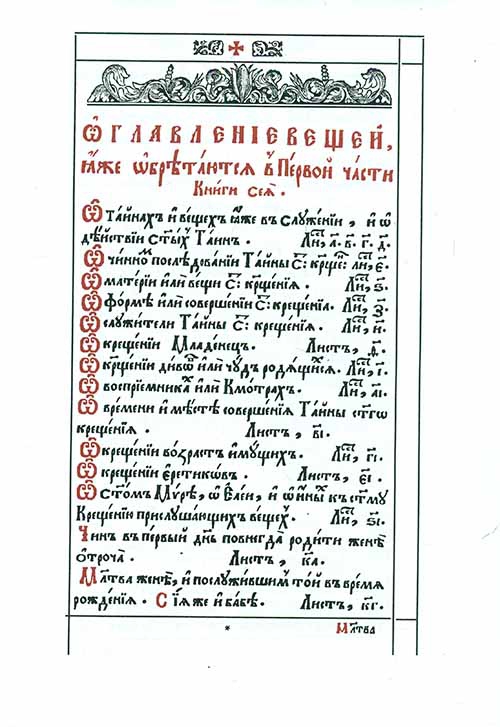 Ѡ҆ГЛАВЛЕНЇЕ ВЕЩЕЙ,
ꙗ҆́же ѡ҆брѣта́ютсѧ в̾ Пе́рвой ча́сти
Кни́ги сеѧ̀.
Ѡ҆ Та́йнахъ и҆ ве́щехъ ꙗ҆́же въ слꙋже́нїи, и҆ ѡ҆
дѣ́йствїи ст҃ы́хъ Та́инъ. Ли́ст, а҃. в҃. г҃. д҃.
Ѡ҆ чи́нно послѣ́дованїи Та́йны С: крⷭ҇ще: ли́ст, є҃.
Ѡ҆ мате́рїи и҆лѝ ве́щи С: крⷭ҇ще́нїѧ. Ли́ст, ѕ҃.
Ѡ҆ фо́рмѣ и҆лѝ соверше́нїи С: креще́нїѧ. Ли́ст, з҃.
Ѡ҆ слꙋжи́тели Та́йны С: креще́нїѧ. Ли́ст, и҃.
Ѡ҆ креще́нїи Младе́нецъ. Ли́стъ, ѳ҃.
Ѡ҆ крⷭ҇ще́нїи ди́вѡⷡ҇ и҆лѝ чꙋ́дъ родѧ́щихсѧ. Ли́ст, і҃.
Ѡ҆ воспрїе́мникахъ и҆лѝ Кмо́трахъ. Ли́ст, а҃і.
Ѡ҆ вре́мени и҆ мѣ́стѣ соверше́нїѧ Та́йны ст҃гѡ
креще́нїѧ. Ли́стъ, в҃і.
Ѡ҆ креще́нїи во́зрастъ и҆мꙋ́щихъ. Ли́ст, г҃і.
Ѡ҆ креще́нїи є҆рети́кѡвъ. Ли́стъ, є҃і.
Ѡ҆ ст҃о́мъ Мѵ́рѣ, ѡ҆ Є҆ле́и, и҆ ѡ҆ и҆́ныхъ къ ст҃мꙋ
Креще́нїи прислꙋша́ющихъ ве́щехъ. Ли́ст, ѕ҃і.
Чи́нъ въ пе́рвый де́нь повнегда̀ роди́ти женѣ̀
ѻ҆троча̀. Ли́стъ, к҃а.
Мл҃тва женѣ̀, и҆ послꙋжи́вшимъ то́й въ вре́мѧ
рожде́нїѧ. Сїѧ́ же и҆ ба́бѣ. Ли́стъ, к҃г.
* Мл҃тва